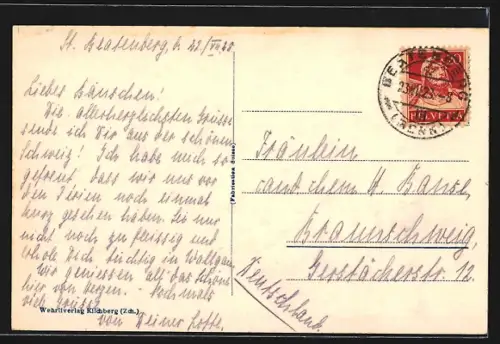 St. Beatenberg, d. 22/VII 28
Liebes Hänschen!
Die allerherzlichsten Grüsse
sende ich Dir aus der schönen
Schweiz! Ich habe mich so
gefreut dass wir uns vor
den Ferien noch einmal
kurz gesehen haben. Sei nur
nicht noch zu fleissig und
erhole Dich tüchtig in Wallgau
Wir geniessen all das Schöne
hier von Herzen. Nochmals
viele Grüsse
von Deiner Lotte.
Wehrliverlag Kilchberg (Zch.)
(Fabrication Suisse)
20
HELVETIA
(BERN)
Fräulein
cand. chem. H. Banse,
Braunschweig,
Gerstäckerstr. 12.
Deutschland